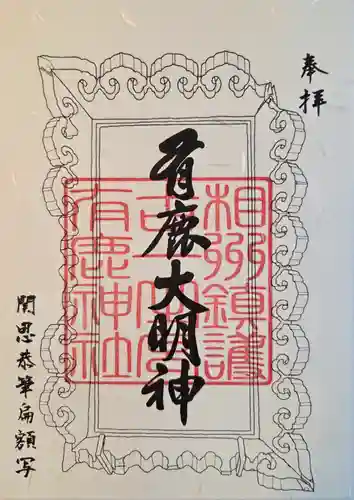 奉拝
有鹿大明神
相州鎮護
古一宮
有鹿神社
関思恭筆扁額写